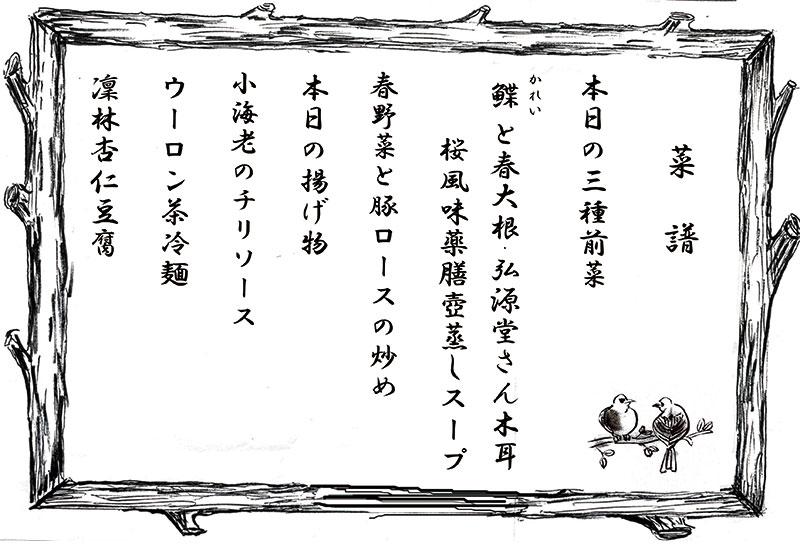 菜譜
本日の三種前菜
かれい
鰈と春大根・弘源堂さん木耳
桜風味薬膳壺蒸しスープ
春野菜と豚ロースの炒め
本日の揚げ物
小海老のチリソース
ウーロン茶冷麺
凜林杏仁豆腐